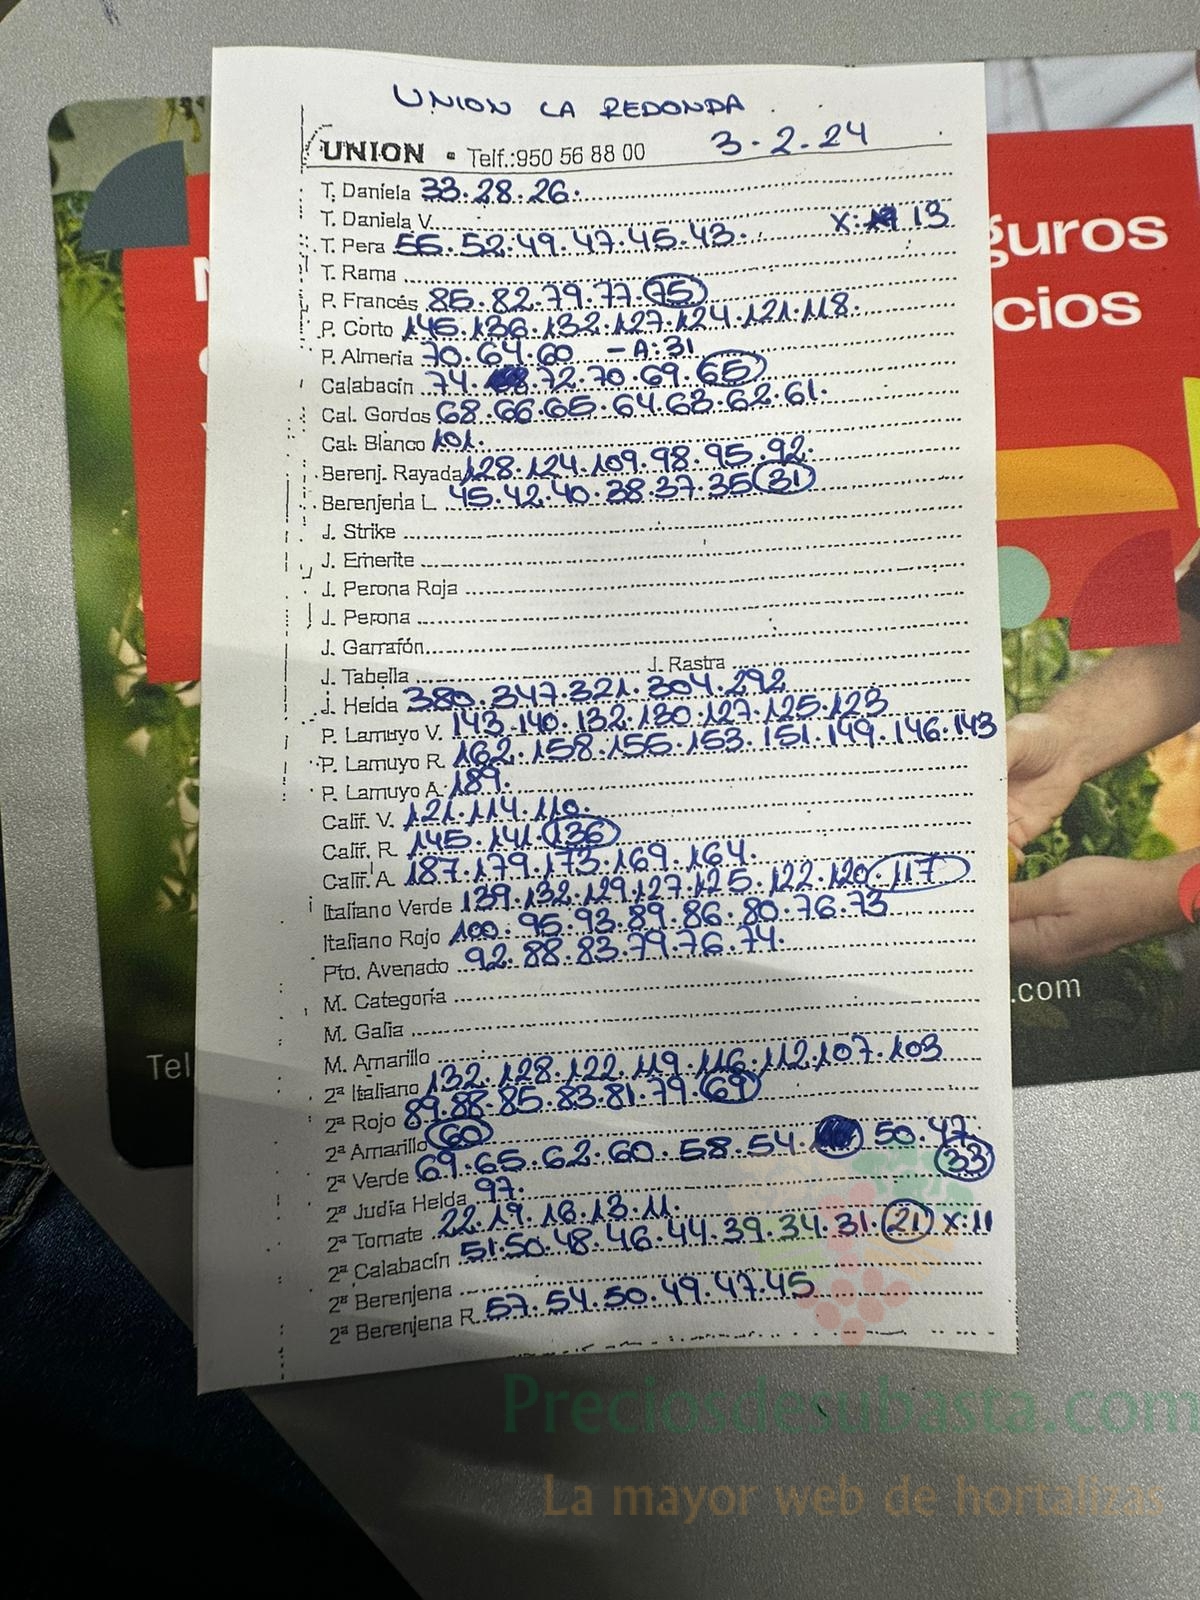 UNION LA REDONDA
UNION • Telf.:950 56 88 00 3.2.24
T. Daniela 33.28.26.
T. Daniela V.
T. Pera 55.52.49.47.45.43. X: 13
T. Rama
P. Francés 85.82.79.77.75
P. Corto 145.136.132.127.124.121.118.
P. Almeria 70.64.60 -A:31
Calabacín 74. 72.70.69.65
Cal. Gordos 68.66.65.64.63.62.61.
Cal. Blanco 101.
Berenj. Rayada 128.124.109.98.95.92.
Berenjena L. 45.42.40.38.37.35 31
J. Strike
J. Emerite
J. Perona Roja
J. Perona
J. Garrafón
J. Tabella J. Rastra
J. Helda 380.347.321.304.292
P. Lamuyo V. 143.140.132.130.127.125.123
P. Lamuyo R. 162.158.155.153.151.149.146.143
P. Lamuyo A. 189.
Calif. V. 121.114.110.
Calif. R. 145.141.136
Calif. A. 187.179.173.169.164.
Italiano Verde 139.132.129.127.125.122.120.117
Italiano Rojo 100.95.93.89.86.80.76.73
Pto. Avenado 92.88.83.79.76.74.
M. Categoría
M. Galia
M. Amarillo
2ª Italiano 132.128.122.119.116.112.107.103
2ª Rojo 89.88.85.83.81.79.69
2ª Amarillo 60
2ª Verde 69.65.62.60.58.54. 50.47. 33
2ª Judía Helda 97.
2ª Tomate 22.19.16.13.11.
2ª Calabacín 51.50.48.46.44.39.34.31.21 X:11
2ª Berenjena
2ª Berenjena R. 57.54.50.49.47.45
guros
cios
.com
Tel
Preciosdesubasta.com
La mayor web de hortalizas